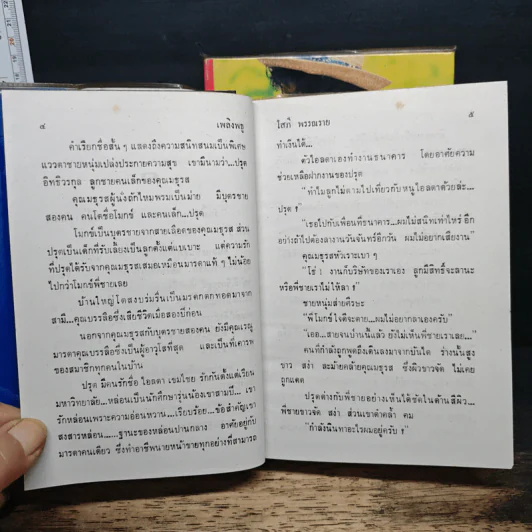 ๔
เพลิงพธู
คำเรียกชื่อสั้น ๆ แสดงถึงความสนิทสนมเป็นพิเศษ
แววตาชายหนุ่มเปล่งประกายความสุข เขามีนามว่า...ปรุต
อิทธิวรกุล ลูกชายคนเล็กของคุณมธุรส
คุณมธุรสผู้นั่งถักไหมพรมเป็นม่าย มีบุตรชาย
สองคน คนโตชื่อโมกข์ และคนเล็ก...ปรุต
โมกข์เป็นบุตรชายจากสายเลือดของคุณมธุรส ส่วน
ปรุตเป็นเด็กที่รับเลี้ยงเป็นลูกตั้งแต่แบเบาะ แต่ความรัก
ที่ปรุตได้รับจากคุณมธุรสเสมอเหมือนมารดาแท้ ๆ ไม่น้อย
ไปกว่าโมกข์พี่ชายเลย
บ้านใหญ่โตสงบร่มรื่นเป็นมรดกตกทอดมาจาก
สามี...คุณบรรลือซึ่งเสียชีวิตเมื่อสองปีก่อน
นอกจากคุณมธุรสกับบุตรชายสองคน ยังมีคุณเรณู
มารดาคุณบรรลือซึ่งเป็นผู้อาวุโสที่สุด และเป็นที่เคารพ
ของสมาชิกทุกคนในบ้าน
ปรุต มีคนรักชื่อ ไอลดา เขมไชย รักกันตั้งแต่เรียน
มหาวิทยาลัย...หล่อนเป็นนักศึกษารุ่นน้องเขาสามปี... เขา
รักหล่อนเพราะความอ่อนหวาน...เรียบร้อย...ข้อสำคัญเขา
สงสารหล่อน......ฐานะของหล่อนปานกลาง อาศัยอยู่กับ
มารดาคนเดียว ซึ่งทำอาชีพนายหน้าขายทุกอย่างที่สามารถ
โสภี พรรณราย
๕
ทำเงินได้...
ตัวไอลดาเองทำงานธนาคาร โดยอาศัยความ
ช่วยเหลือฝากงานของปรุต
“ทำไมลูกไม่ตามไปเที่ยวกับหนูไอลดาด้วยล่ะ...
ปรุต ?”
“เธอไปกับเพื่อนที่ธนาคาร...ผมไม่สนิทเท่าไหร่ อีก
อย่างถ้าไปต้องลางานวันจันทร์อีกวัน ผมไม่อยากเสียงาน”
คุณมธุรสหัวเราะเบา ๆ
“โธ่ ! งานก็บริษัทของเราเอง ลูกมีสิทธิ์จะลานะ
หรือพี่ชายเราไม่ให้ลา ?”
ชายหนุ่มส่ายศีรษะ
“พี่โมกข์ใจดีจะตาย...ผมไม่อยากลาเองครับ”
“เออ...สายจนป่านนี้แล้ว ยังไม่เห็นพี่ชายเราเลย...”
คนที่กำลังถูกพูดถึงเดินลงมาจากบันได ร่างนั้นสูง
ขาว สง่า ละม้ายคล้ายคุณมธุรส ซึ่งผิวขาวจัด ไม่เคย
ถูกแดด
ปรุตต่างกับพี่ชายอย่างเห็นได้ชัดในด้านสีผิว...
พี่ชายขาวจัด สง่า ส่วนเขาดำคล้ำ คม
“กำลังนินทาอะไรผมอยู่ครับ ?”